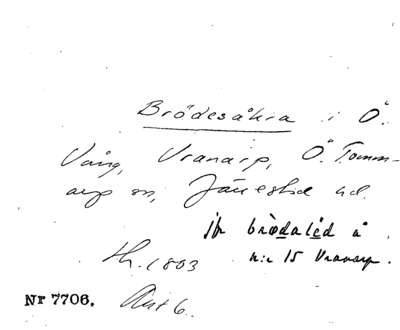 Brödesåkra i Ö.
Vång, Vranarp, Ö. Tomm-
arp sn, Järrestad hd.
jfr brödaled å
n:r 15 Vranarp.
Sk. 1803
Nr 7706. Akt 6.